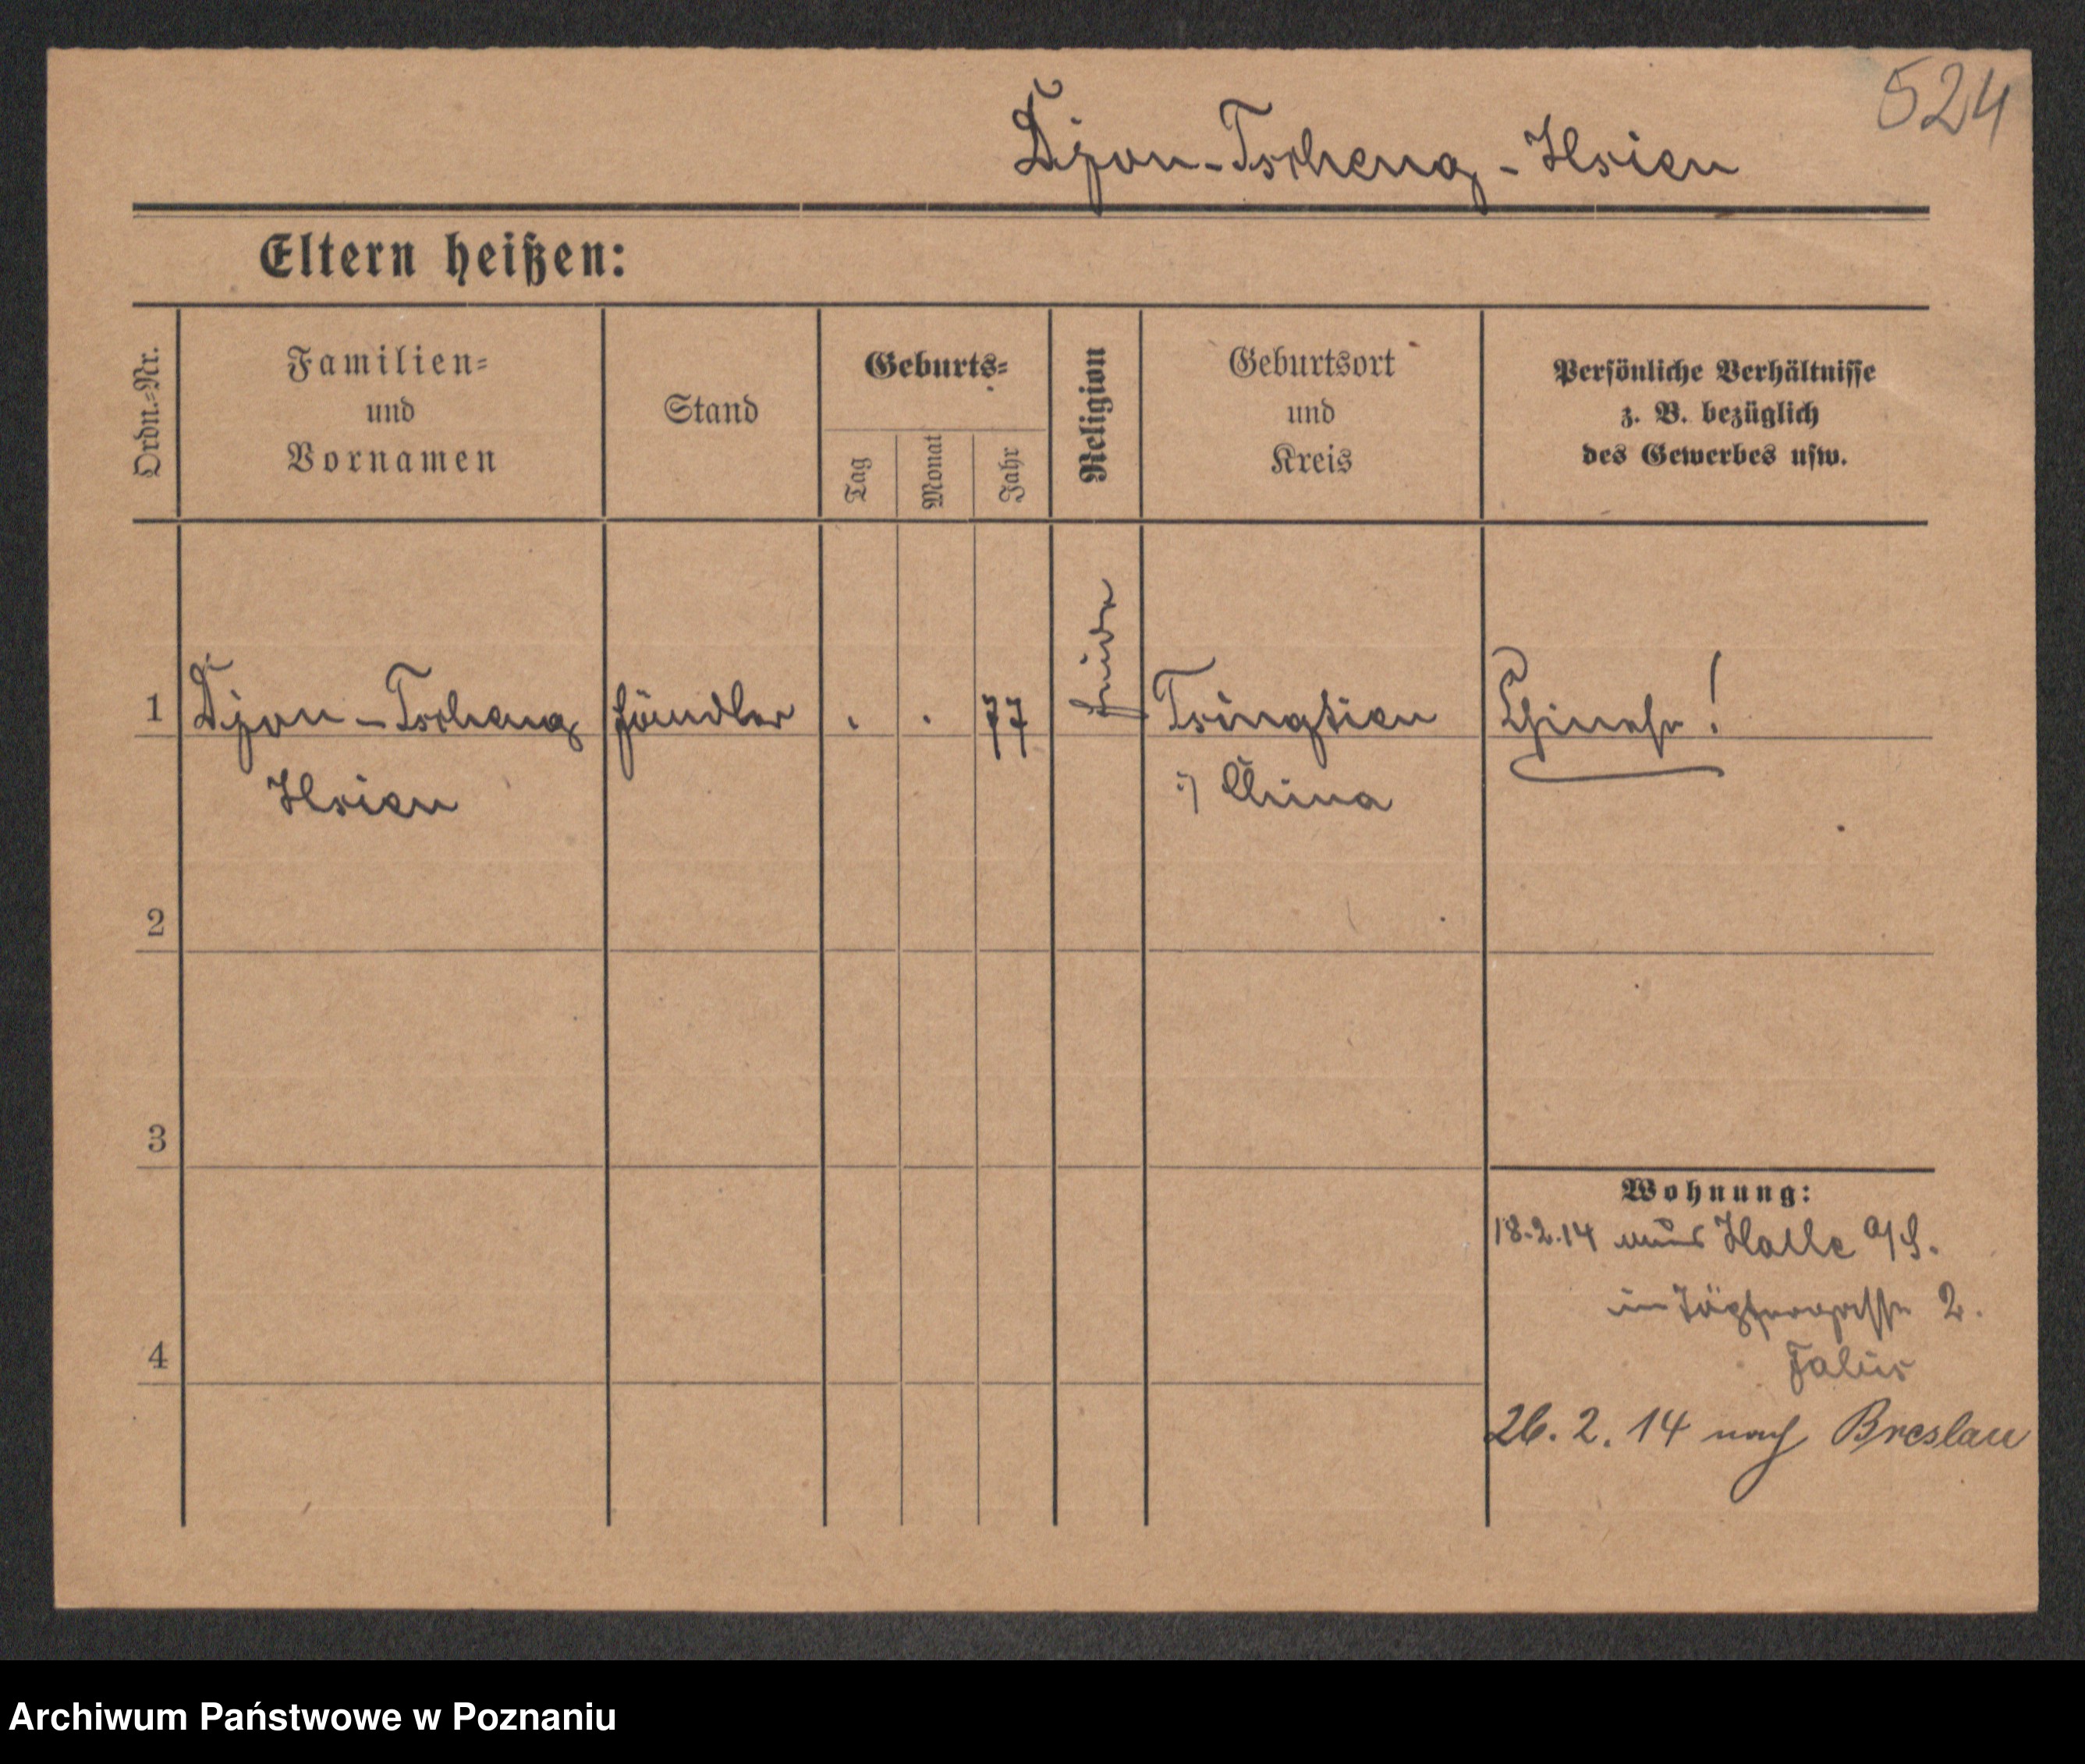 524
Djou-Tscheng-Hsien
Eltern heißen:
Ordn.-Nr.
Familien-
und
Vornamen
Stand
Geburts-
Tag
Monat
Jahr
Religion
Geburtsort
und
Kreis
Persönliche Verhältnisse
z. B. bezüglich
des Gewerbes usw.
1
Djou-Tscheng
Hsien
Händler
. . 77
Heide
Tsingtien
i/ China
Chinese!
2
3
4
Wohnung:
18.2.14 aus Halle a/S.
in Töpfergasse 2.
26.2.14 nach Breslau
Archiwum Państwowe w Poznaniu